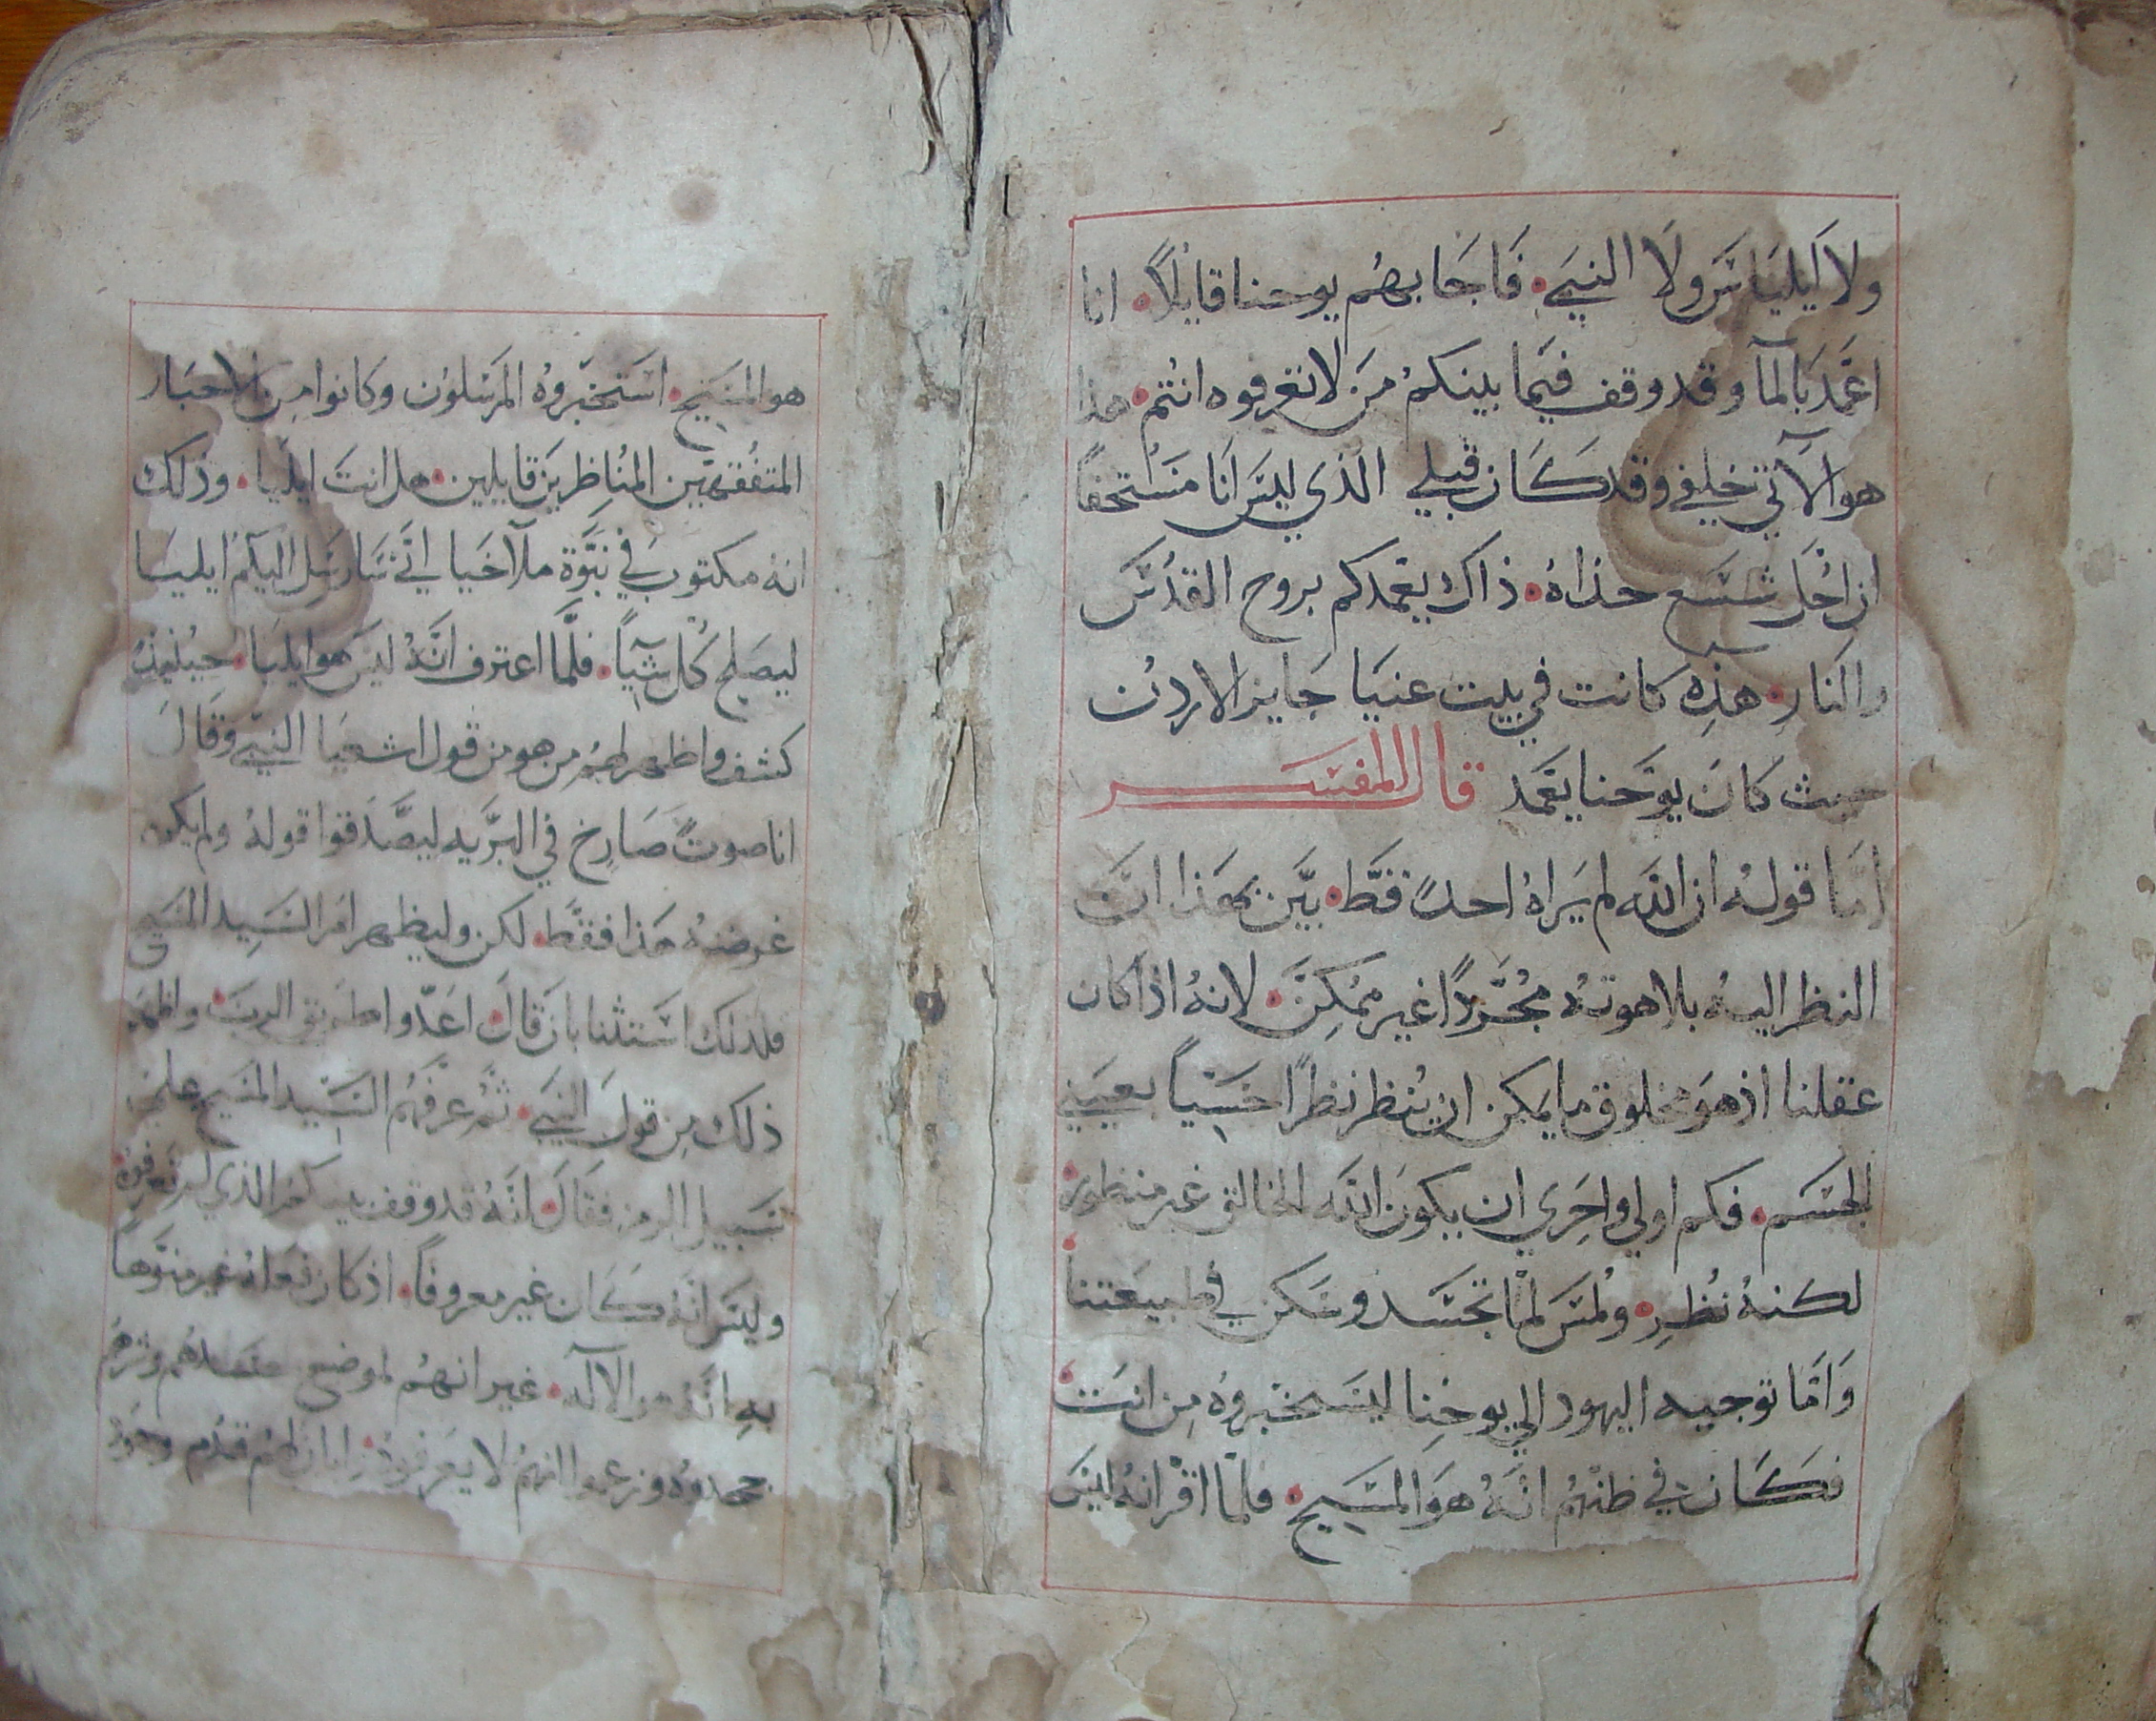 ولا ايلياس ولا النبي. فاجابهم يوحنا قايلاً. انا
اعمد بالما وقد وقف فيما بينكم من لا تعرفوه انتم. هذا
هو الآتي خلفي وقد كان قبلي الذي ليس انا مستحقاً
ان احل شسع حذاه. ذاك يعمدكم بروح القدس
والنار. هذه كانت في بيت عنيا جايز الاردن
حيث كان يوحنا يعمد قال المفسر
امَّا قوله ان الله لم يراه احدً قط. بيّن بهذا انَّ
النظر اليه بلاهوته مجرّدًا غير ممكن. لانه اذا كان
عقلنا اذ هو مخلوق ما يمكن ان ينظر نظرًا حسياً بعيني
الجسم. فكم اولي واحري ان يكون الله الخالق غير منظور.
لكنه نُظِر. ولُمس لمّا تجسد وسكن في طبيعتنا.
وامّا توجيه اليهود الي يوحنا ليستخبروه من انت.
فكان في ظنهم انّه هو المسيح. فلمّا اقرّ انه ليس
هو المسيح. استخبروه المرسلون وكانوا من الاحبار
المتفقهين المناظرين قايلين. هل انت ايليا. وذلك
انه مكتوب في نبوّة ملآخيا انّي سارسل اليكم ايليا
ليصلح كُل شياً. فلمَّا اعترف انَّهُ ليس هو ايليا. حينيذ
كشف واظهر لهم من هو من قول اشعيا النبي وقال
انا صوت صارخ في البريه ليصَّدقوا قوله ولم يكون
غرضه هذا فقط. لكن وليظهر امر السيد المسيح
فلذلك استثنا بان قال. اعدّوا طريق الرب. واظهر
ذلك من قول النبي. ثم عرّفهم السيد المسيح علي
سبيل الرمز فقال. انَّهُ قد وقف بينكم الذي لم تعرفوه.
وليس انّه كان غير معروفاً. اذ كان فعله غير منوّهاً
به انَّه هو الآله. غير انهم لموضع حسدهم وشرهم
جحدوه وزعموا انهم لا يعرفوه. ابان لهم قدم وجوده